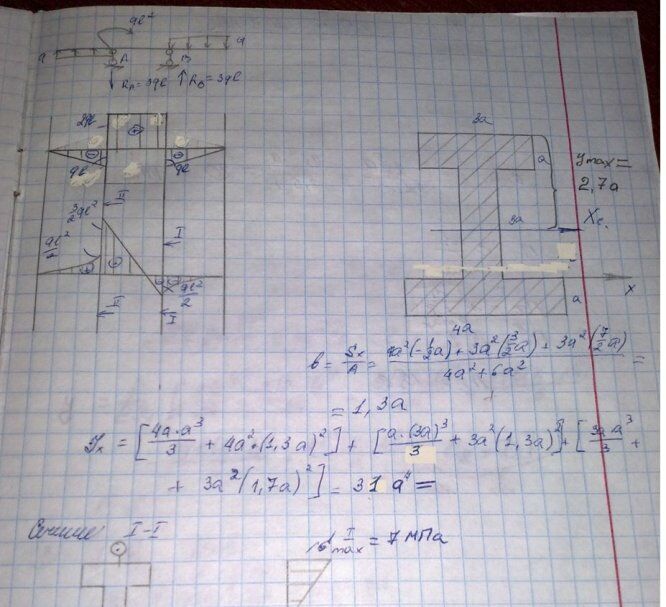 ql²
q
q
A
B
R_A = 3ql
R_B = 3ql
2ql
ql
ql
II
3/2 ql²
I
ql²/2
ql²/2
II
I
3a
a
y max =
2,7a
3a
Xc
x
a
4a
b = Sx/A = (4a²(-1/2 a) + 3a²(3/2 a) + 3a²(7/2 a)) / (4a² + 6a²) =
= 1,3a
Jx = [4a·a³/3 + 4a²·(1,3a)²] + [a·(3a)³/3 + 3a²(1,3a)²] + [3a·a³/3 +
+ 3a²(1,7a)²] = 31 a⁴ =
Сечение I-I
I max = 7 МПа